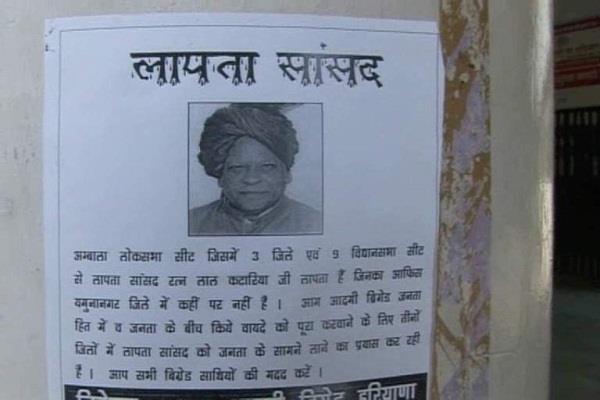 लापता सांसद
अम्बाला लोकसभा सीट जिसमें 3 जिले एवं 9 विधानसभा सीट
से लापता सांसद रत्न लाल कटारिया जी लापता हैं जिनका आफिस
यमुनानगर जिले में कहीं पर नहीं है । आम आदमी बिग्रेड जनता
हित में व जनता के बीच किये वायदे को पूरा करवाने के लिए तीनों
जिलों में लापता सांसद को जनता के सामने लाने का प्रयास कर रही
है । आप सभी बिग्रेड साथियों की मदद करें ।
बिग्रेड हरियाणा